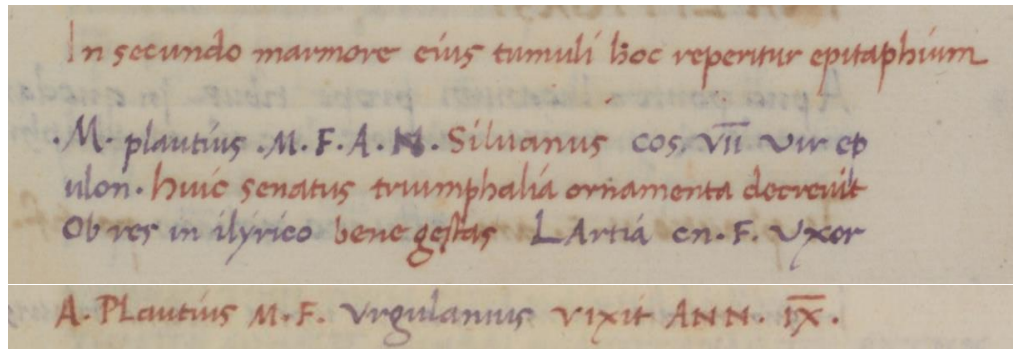 In secundo marmore eius tumuli hoc reperitur epitaphium
.M. plautius .M. F. A. N. Siluanus cos. VII vir ep
ulon. huic senatus triumphalia ornamenta decreuit
Ob res in ilyrico bene gestas LArtia cn. F. Vxor
A. PLautius M. F. Vrgulanius vixit ANN. IX.